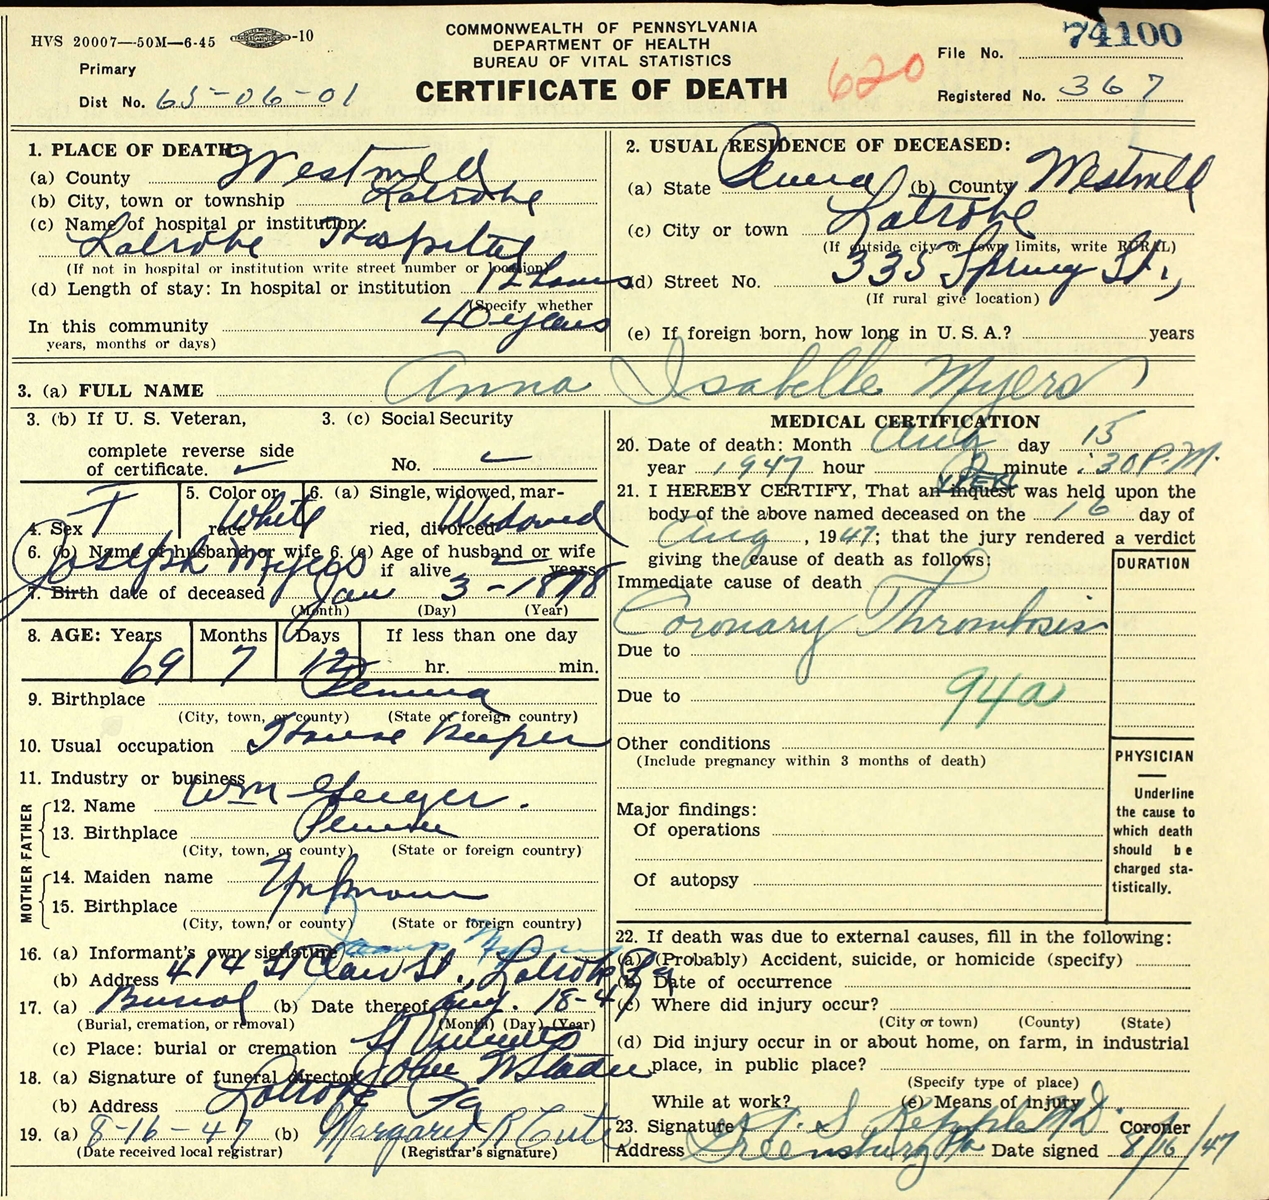 HVS 20007—50M—6-45 -10
COMMONWEALTH OF PENNSYLVANIA
DEPARTMENT OF HEALTH
BUREAU OF VITAL STATISTICS
CERTIFICATE OF DEATH
620
File No. 74100
Primary
Dist No. 65-06-01
Registered No. 367
1. PLACE OF DEATH:
(a) County Westmld
(b) City, town or township Latrobe
(c) Name of hospital or institution:
Latrobe Hospital
(If not in hospital or institution write street number or location)
(d) Length of stay: In hospital or institution 12 hours
(Specify whether
In this community 40 years
years, months or days)
2. USUAL RESIDENCE OF DECEASED:
(a) State Penna (b) County Westmld
(c) City or town Latrobe
(If outside city or town limits, write RURAL)
(d) Street No. 335 Spring St.,
(If rural give location)
(e) If foreign born, how long in U. S. A.? years
3. (a) FULL NAME Anna Isabelle Myers
3. (b) If U. S. Veteran,
complete reverse side
of certificate. ✓
3. (c) Social Security
No. ✓
4. Sex F
5. Color or
race White
6. (a) Single, widowed, mar-
ried, divorced Widowed
6. (b) Name of husband or wife
Joseph Myers
6. (c) Age of husband or wife
if alive years
7. Birth date of deceased Jan 3 - 1878
(Month) (Day) (Year)
8. AGE: Years Months Days If less than one day
69 7 12 hr. min.
9. Birthplace Penna
(City, town, or county) (State or foreign country)
10. Usual occupation House Keeper
11. Industry or business
FATHER
12. Name Wm Geiger.
13. Birthplace Penna
(City, town, or county) (State or foreign country)
MOTHER
14. Maiden name Unknown
15. Birthplace
(City, town, or county) (State or foreign country)
16. (a) Informant's own signature James Myers
(b) Address 414 St Clair St., Latrobe Pa
17. (a) Burial (b) Date thereof Aug. 18-47
(Burial, cremation, or removal) (Month) (Day) (Year)
(c) Place: burial or cremation St Vincents
18. (a) Signature of funeral director John
(b) Address Latrobe Pa
19. (a) 8-16-47 (b) Margaret R
(Date received local registrar) (Registrar's signature)
MEDICAL CERTIFICATION
20. Date of death: Month Aug day 15
year 1947 hour 2 minute :30 P.M.
21. I HEREBY CERTIFY, That an inquest was held upon the
VIEW
body of the above named deceased on the 16 day of
Aug, 1947; that the jury rendered a verdict
giving the cause of death as follows:
DURATION
Immediate cause of death
Coronary Thrombosis
Due to
Due to 94a
Other conditions
(Include pregnancy within 3 months of death)
Major findings:
Of operations
Of autopsy
PHYSICIAN
Underline
the cause to
which death
should be
charged sta-
tistically.
22. If death was due to external causes, fill in the following:
(a) (Probably) Accident, suicide, or homicide (specify)
(b) Date of occurrence
(c) Where did injury occur?
(City or town) (County) (State)
(d) Did injury occur in or about home, on farm, in industrial
place, in public place?
(Specify type of place)
While at work? (e) Means of injury
23. Signature S Kepple M.D. Coroner
Address Greensburg Pa Date signed 8/16/47